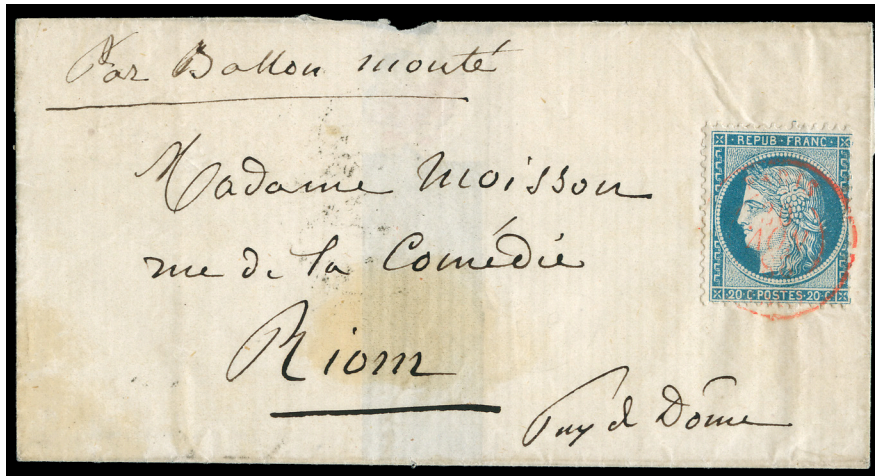 Par Ballon monté
Madame Moisson
rue de la Comédie
Riom
Puy de Dôme
REPUB·FRANC·
20·C·POSTES·20·C·